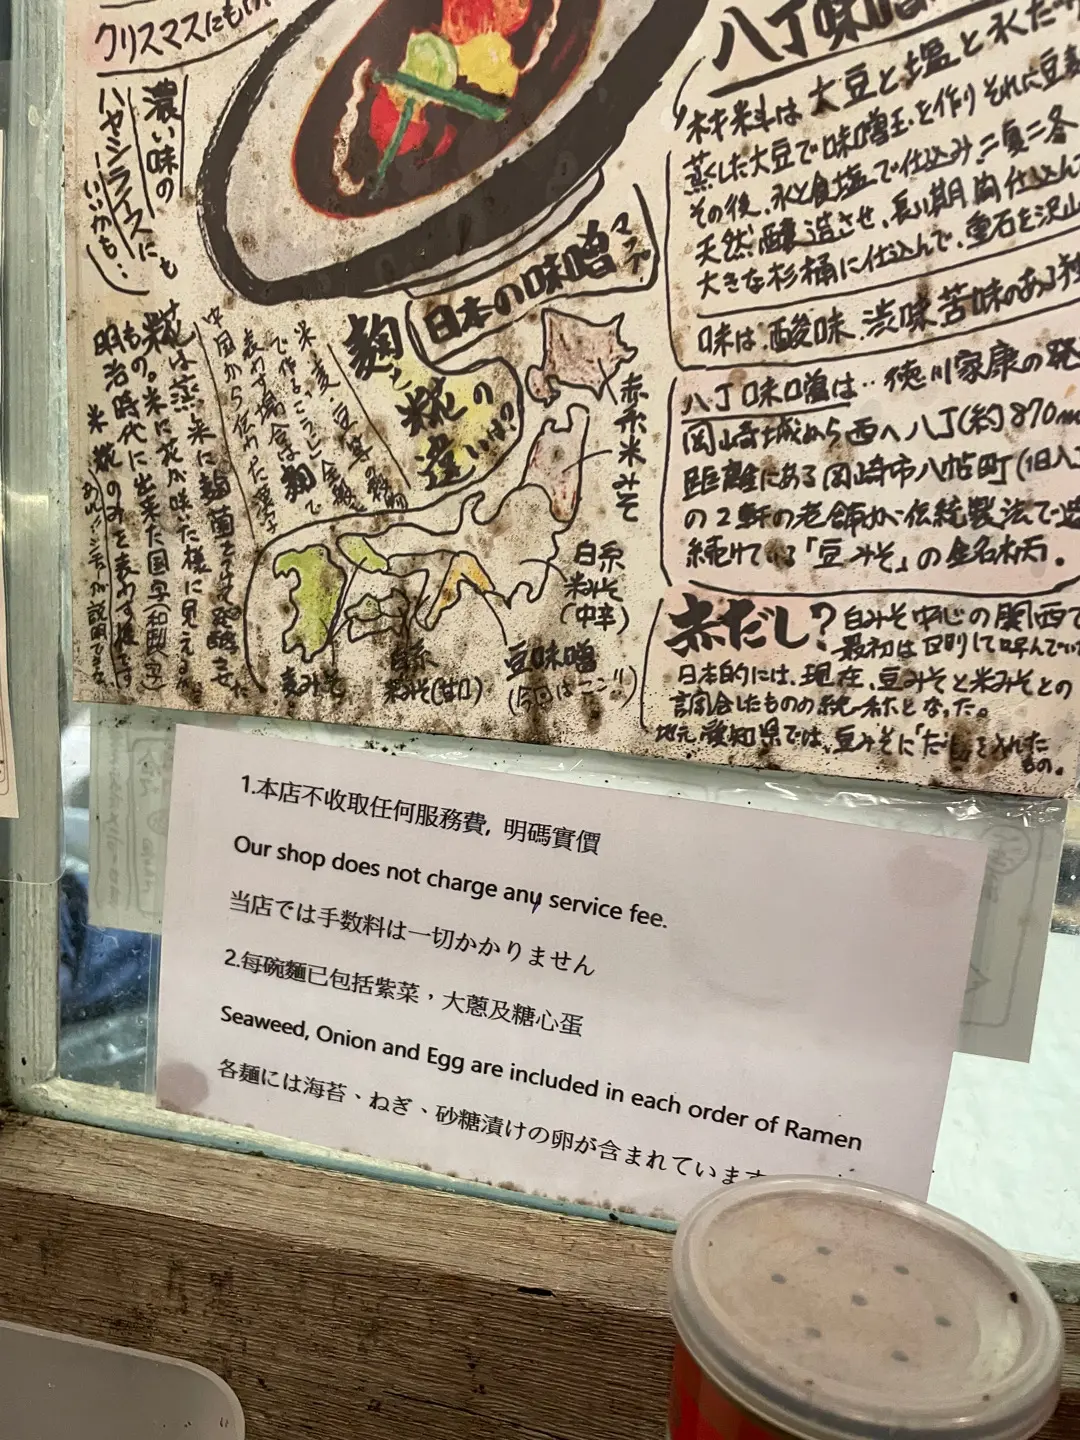 クリスマスにも
濃い味の
ハヤシライスにも
いいかも..
八丁味噌
材料は大豆と塩と水だけ
蒸した大豆で味噌玉を作りそれに豆麹
その後、水と食塩で仕込み、二夏二冬
天然醸造させ、長い期間仕込んで
大きな杉桶に仕込んで、重石を沢山
味は、酸味、渋味、苦味のある独
八丁味噌は‥徳川家康の
岡崎城から西へ八丁(約870m
距離にある岡崎市八帖町(旧八丁
の2軒の老舗が伝統製法で造
続けている「豆みそ」の
日本の味噌マップ
麹と
糀の
違いは?
米、麦、豆等の穀物
で作る
表わす場合は麹で
中国から伝わった漢字
糀は蒸し米に麹菌
もの。米に花が咲いた様に見える。
明治時代に出来た国字(和製漢字)
米糀のみを表わす様です
赤系米みそ
白系
米みそ
(中辛)
麦みそ
白系
米みそ(甘口)
豆味噌
(今回はココ!!)
赤だし?
白みそ中心の関西で
最初は区別して呼んでい
日本的には、現在、豆みそと米みそとの
調合したものの総称となった。
地元愛知県では、豆みそに「だし」を入れた
もの。
1.本店不收取任何服務費, 明碼實價
Our shop does not charge any service fee.
当店では手数料は一切かかりません
2.每碗麵已包括紫菜，大蔥及糖心蛋
Seaweed, Onion and Egg are included in each order of Ramen
各麺には海苔、ねぎ、砂糖漬けの卵が含まれています